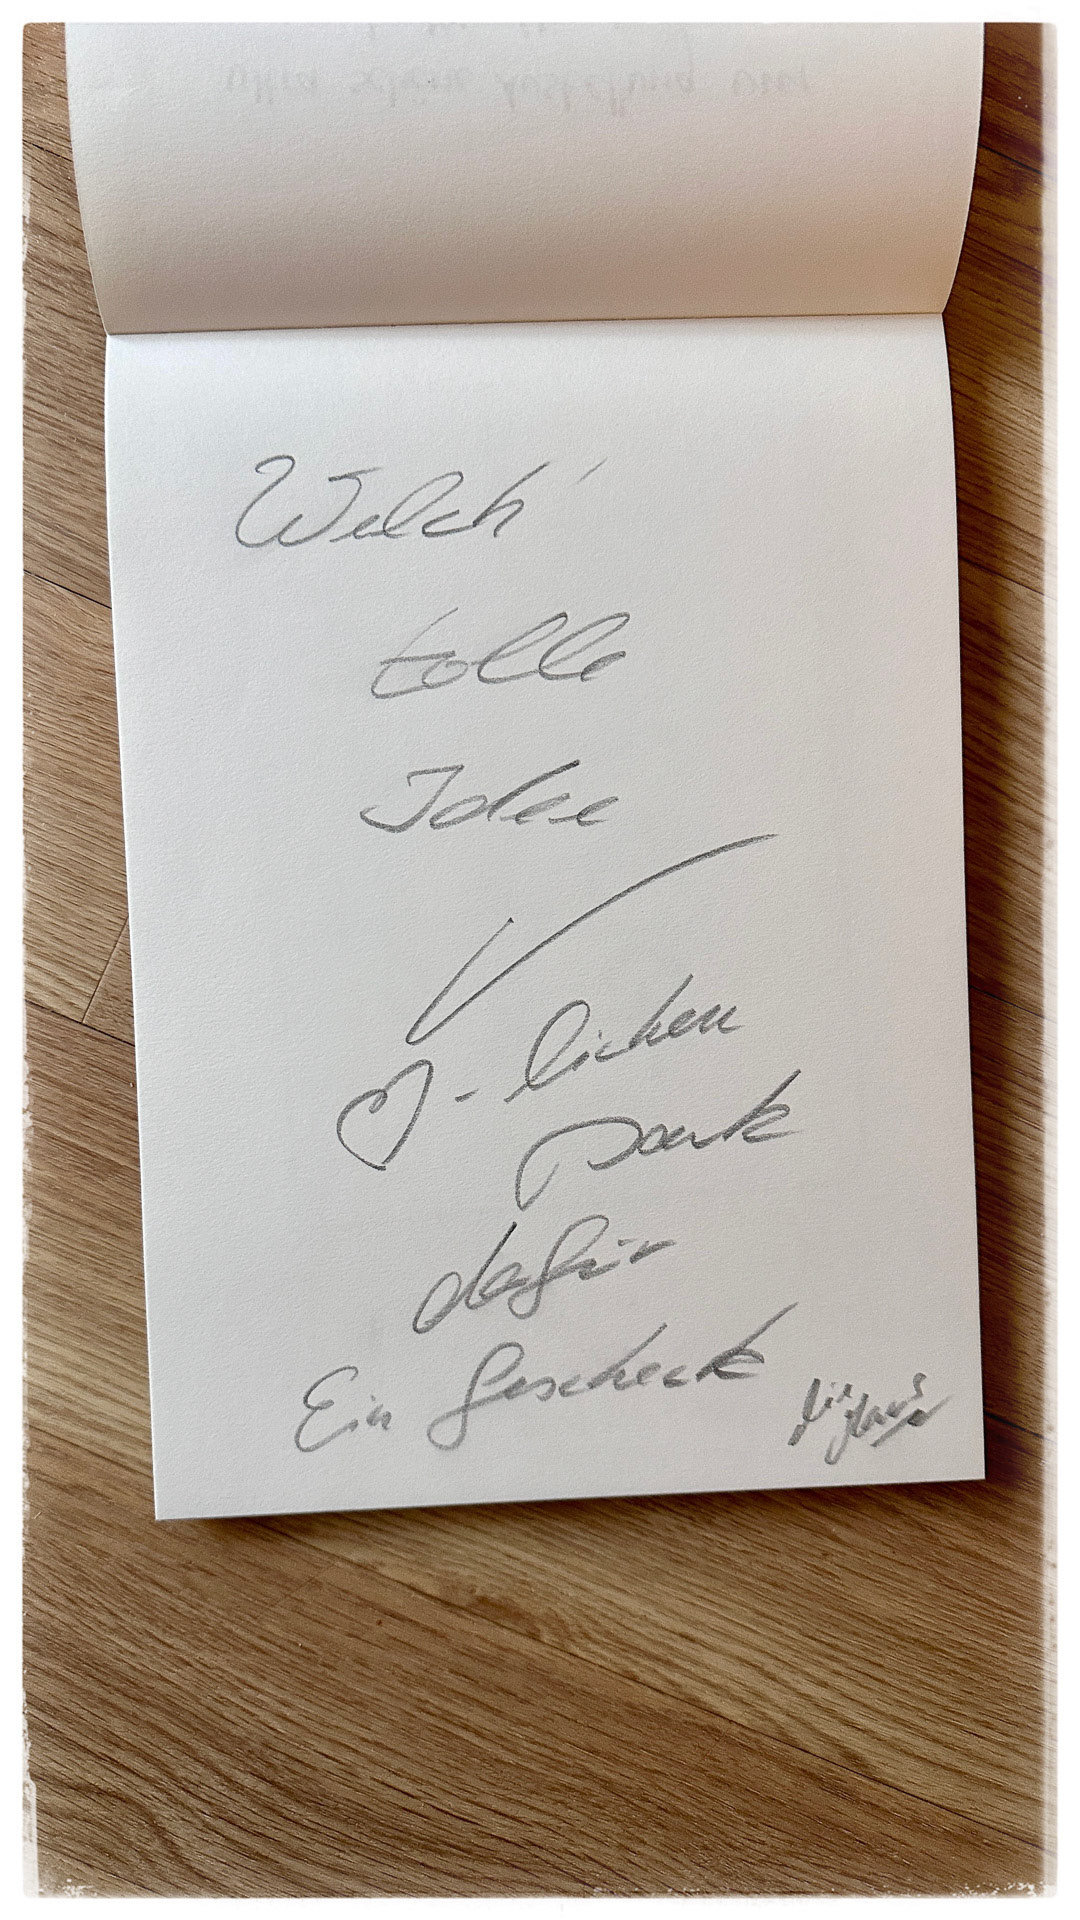 Welch'
tolle
Idee
♡-lichen
Dank
dafür
Ein Gescheck